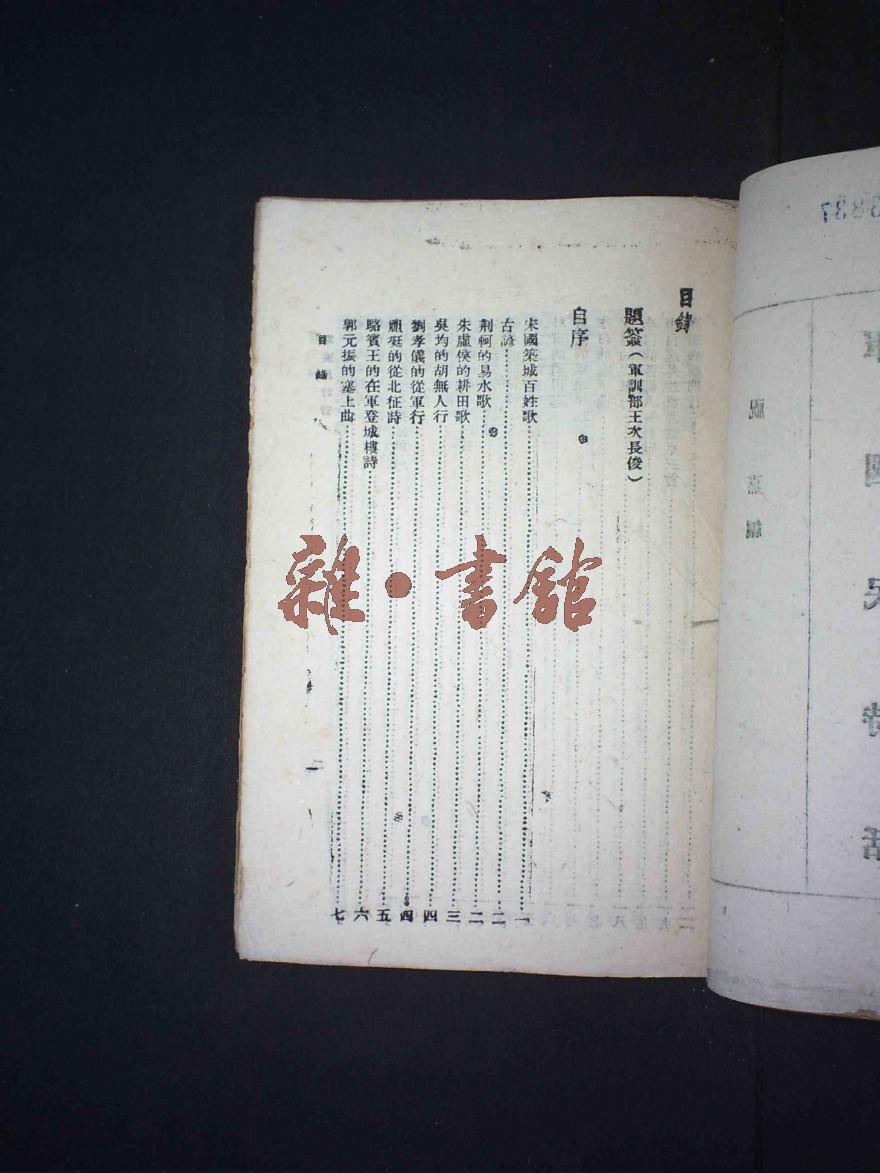 目錄
題簽(軍訓部王次長俊)
自序
宋國築城百姓歌……一
古諺……二
荆軻的易水歌……二
朱虛侯的耕田歌……三
吳均的胡無人行……四
劉孝儀的從軍行……四
蕭㧑的從北征詩……五
駱賓王的在軍登城樓詩……六
郭元振的塞上曲……七
目錄
一
雜·書館